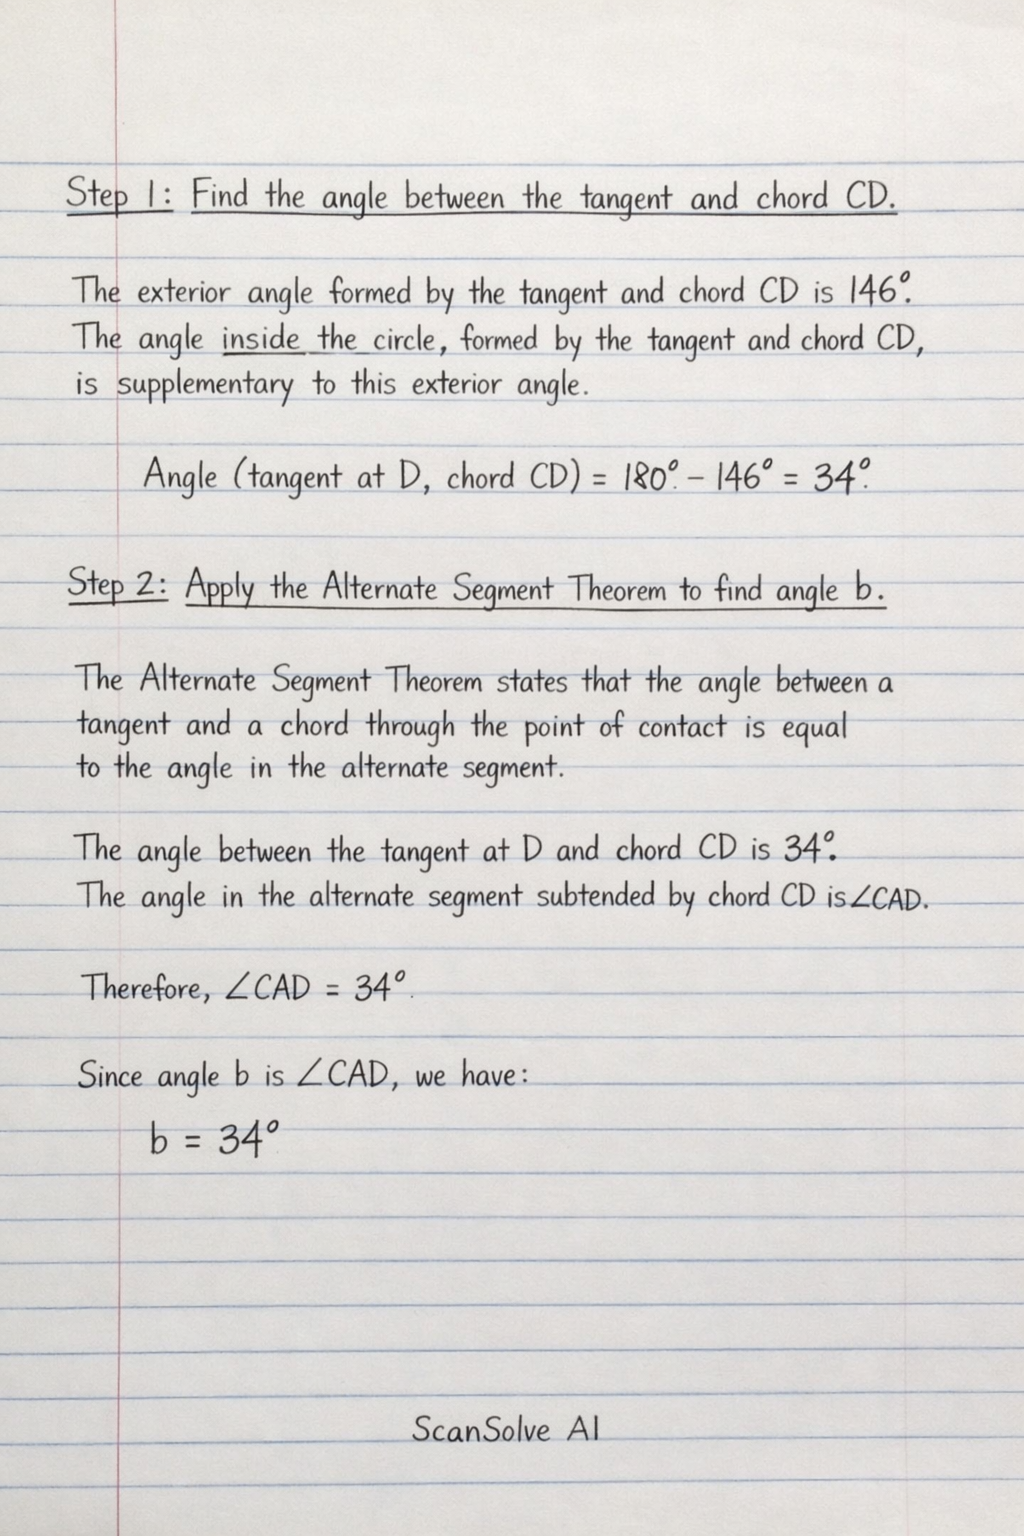 Step 1: Find the angle between the tangent and chord CD.
The exterior angle formed by the tangent and chord CD is 146°.
The angle inside the circle, formed by the tangent and chord CD,
is supplementary to this exterior angle.
Angle (tangent at D, chord CD) = 180°. - 146° = 34°.
Step 2: Apply the Alternate Segment Theorem to find angle b.
The Alternate Segment Theorem states that the angle between a
tangent and a chord through the point of contact is equal
to the angle in the alternate segment.
The angle between the tangent at D and chord CD is 34°.
The angle in the alternate segment subtended by chord CD is ∠CAD.
Therefore, ∠CAD = 34°.
Since angle b is ∠CAD, we have:
b = 34°
ScanSolve AI